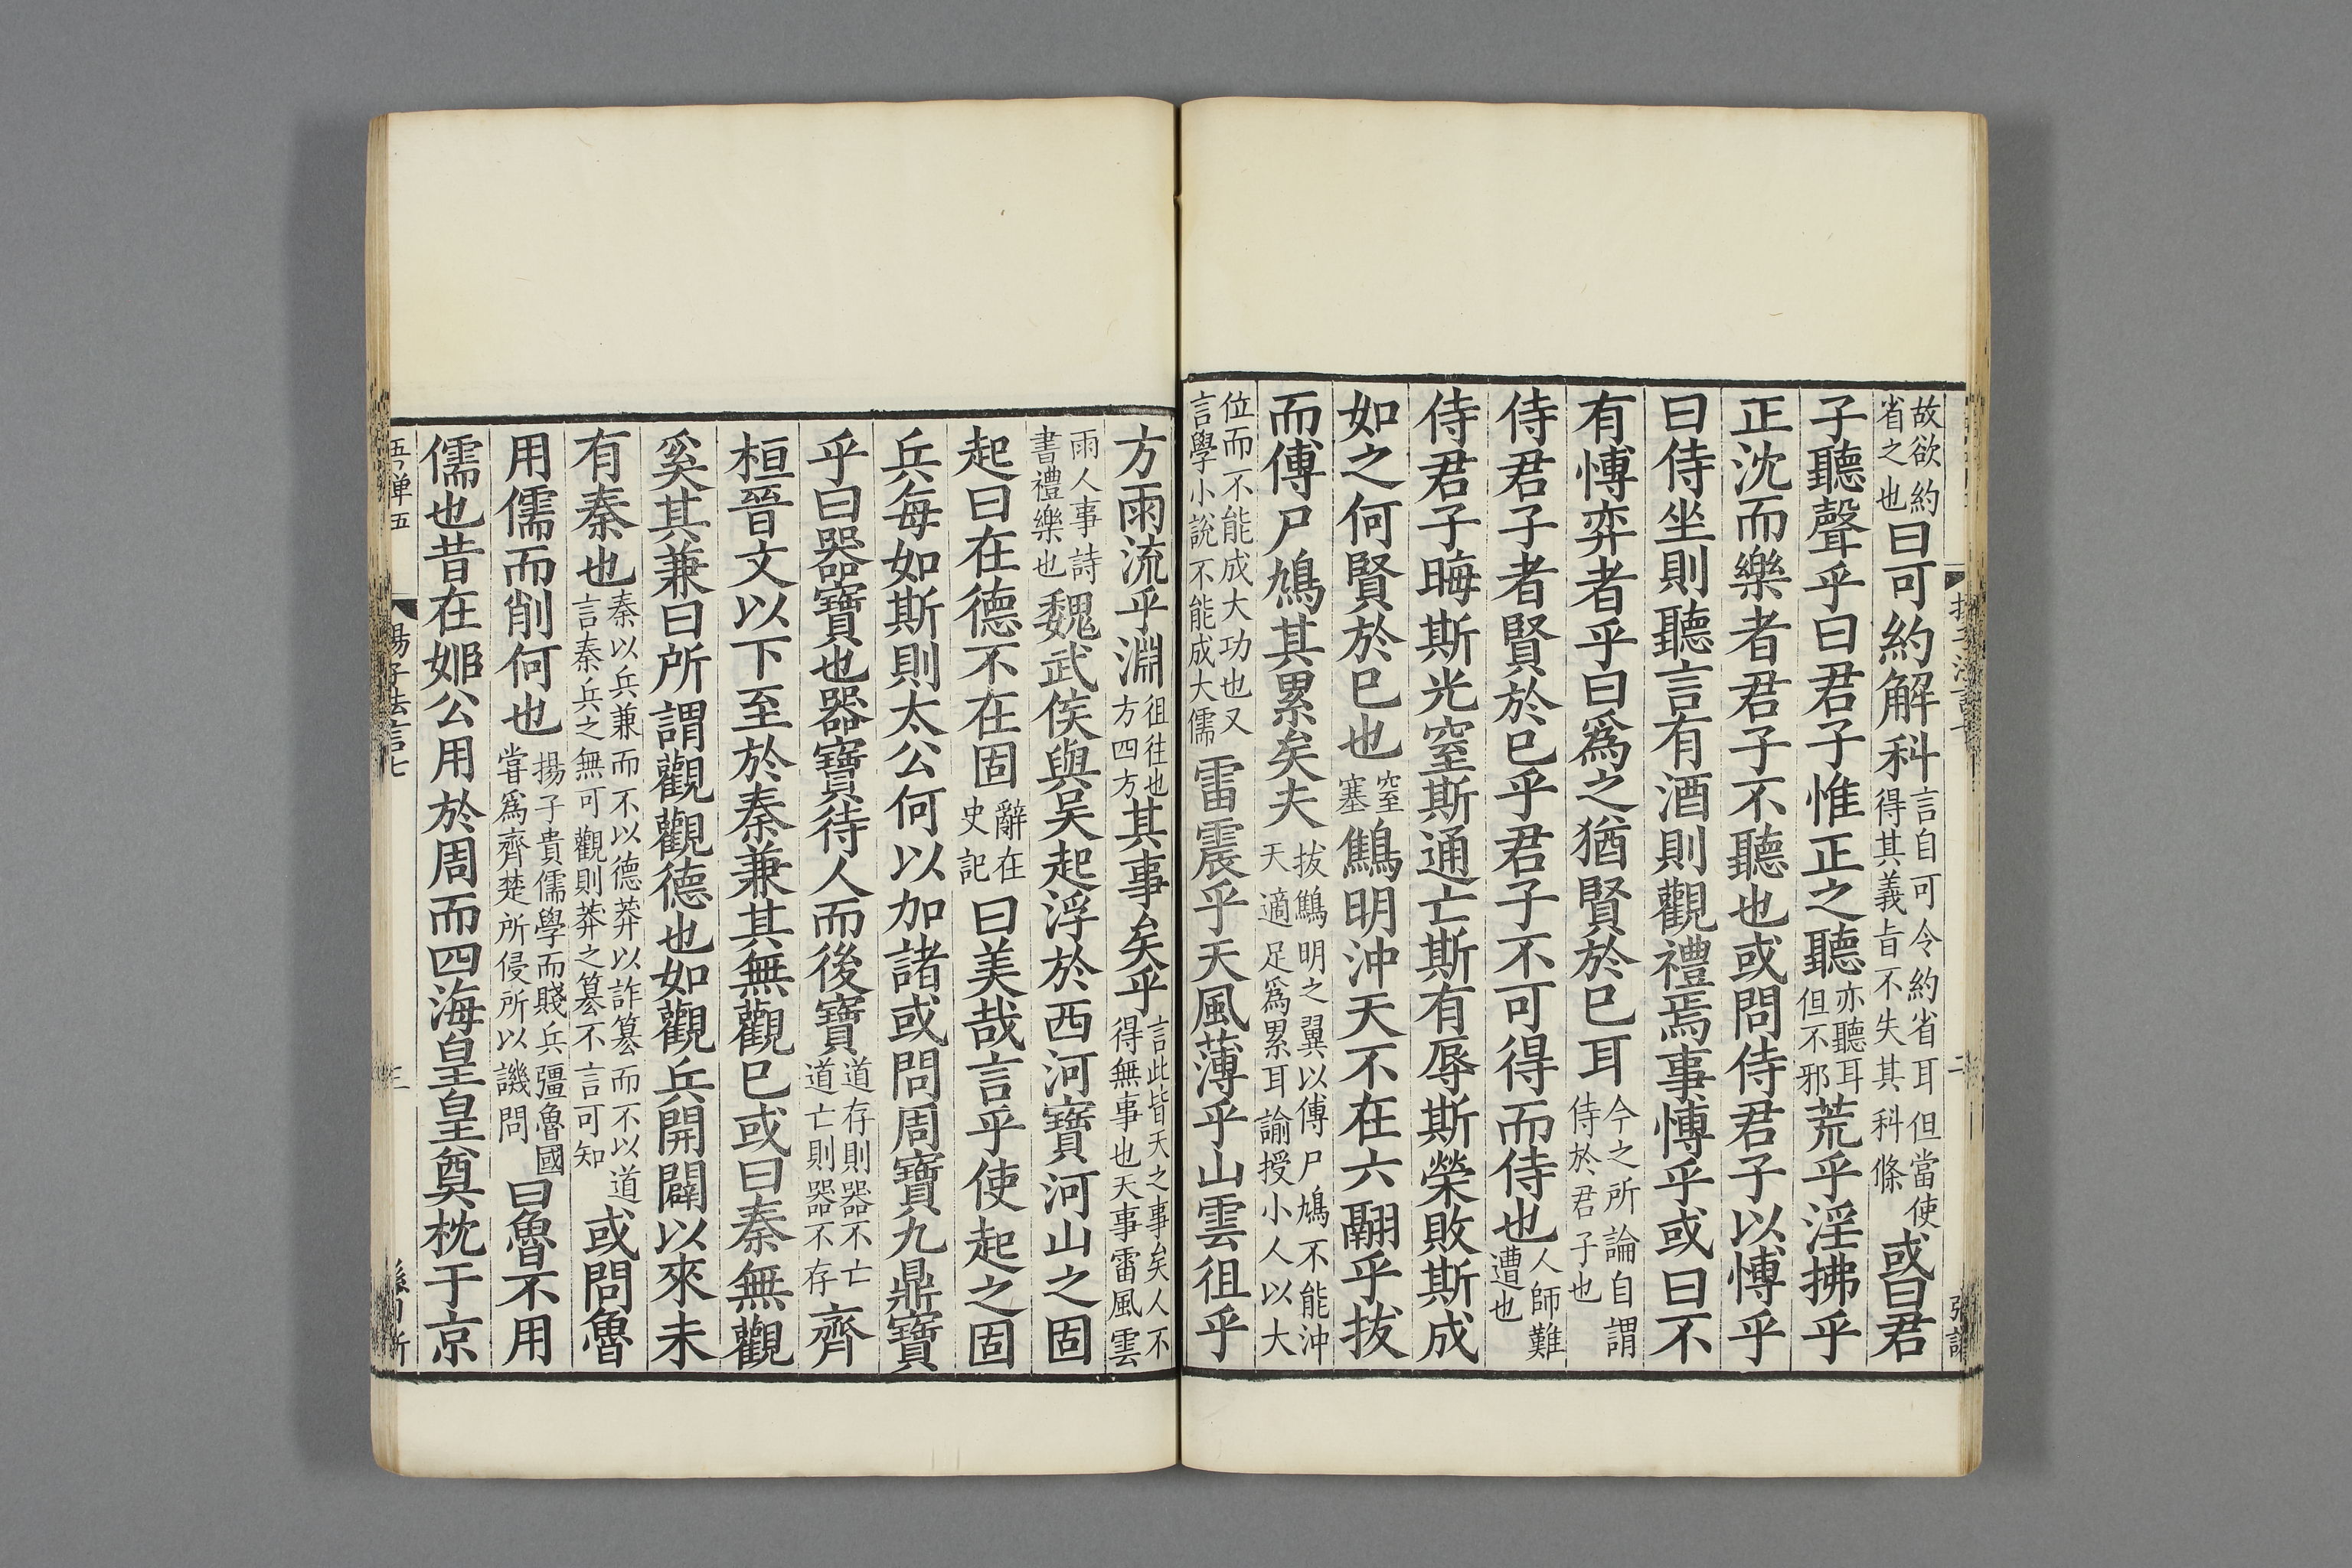 故欲約省之也曰可約解科言自可令約省耳但當使得其義旨不失其科條或曰君
子聽聲乎曰君子惟正之聽亦聽耳但不邪荒乎淫拂乎
正沈而樂者君子不聽也或問侍君子以愽乎
曰侍坐則聽言有酒則觀禮焉事愽乎或曰不
有愽弈者乎曰爲之猶賢於已耳今之所論自謂侍於君子也
侍君子者賢於已乎君子不可得而侍也人師難遭也
侍君子晦斯光窒斯通亡斯有辱斯榮敗斯成
如之何賢於已也窒塞鷦明沖天不在六翮乎拔
而傅尸鳩其累矣夫拔鷦明之翼以傅尸鳩不能沖天適足爲累耳諭授小人以大
位而不能成大功也又言學小說不能成大儒雷震乎天風薄乎山雲徂乎
方雨流乎淵徂往也方四方其事矣乎言此皆天之事矣人不得無事也天事雷風雲
雨人事詩書禮樂也魏武侯與吴起浮於西河寶河山之固
起曰在德不在固辭在史記曰美哉言乎使起之固
兵每如斯則太公何以加諸或問周寶九鼎寶
乎曰器寶也器寶待人而後寶道存則器不亡道亡則器不存齊
桓晉文以下至於秦兼其無觀已或曰秦無觀
奚其兼曰所謂觀觀德也如觀兵開闢以來未
有秦也秦以兵兼而不以德莽以詐篡而不以道言秦兵之無可觀則莽之篡不言可知或問魯
用儒而削何也揚子貴儒學而賤兵彊魯國嘗爲齊楚所侵所以譏問曰魯不用
儒也昔在姬公用於周而四海皇皇奠枕于京
揚子法言七
三